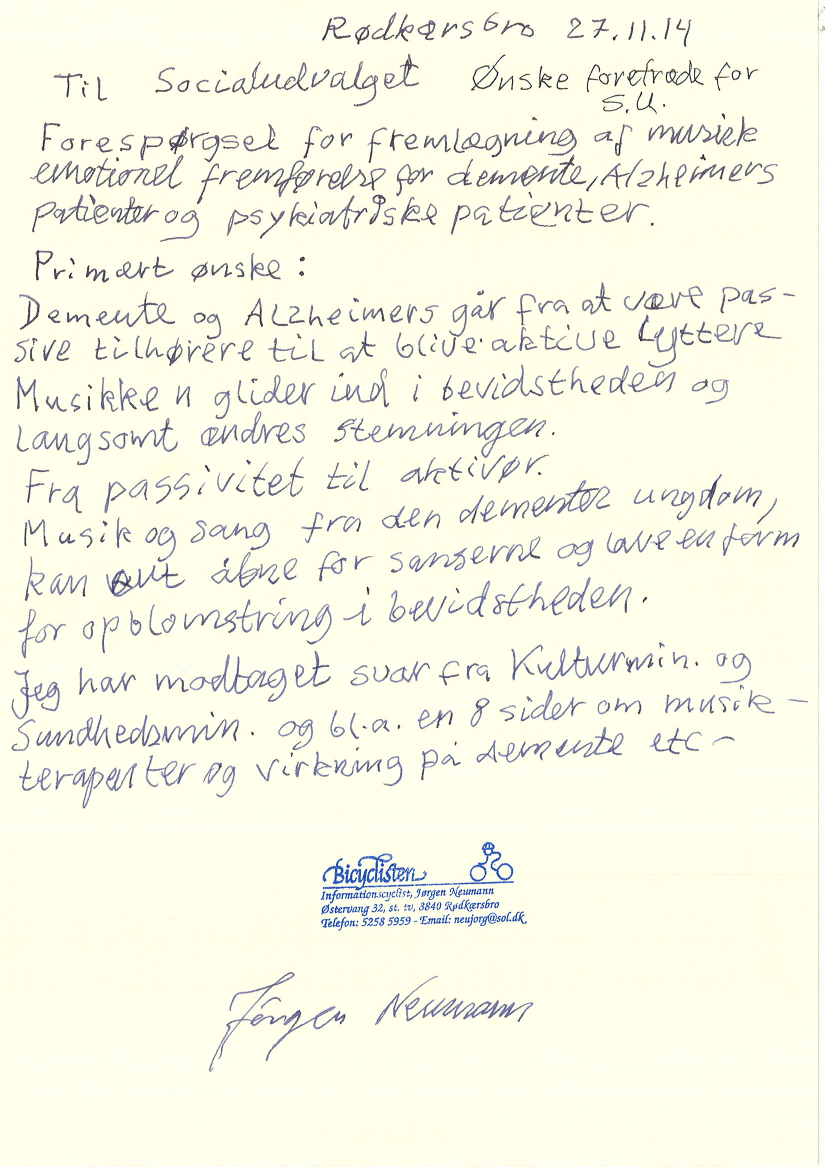 Rødkærsbro 27.11.14
Til Socialudvalget Ønske foretræde for
S.U.
Forespørgsel for fremlægning af musik
emotionel fremførelse for demente, Alzheimers
patienter og psykiatriske patienter.
Primært ønske:
Demente og Alzheimers går fra at være pas-
sive tilhørere til at blive aktive lyttere
Musikken glider ind i bevidstheden og
langsomt ændres stemningen.
Fra passivitet til aktivør.
Musik og sang fra den dementes ungdom,
kan åbne for sanserne og lave en form
for opblomstring i bevidstheden.
Jeg har modtaget svar fra Kulturmin. og
Sundhedsmin. og bl.a. en 8 sider om musik-
terapeuter og virkning på demente etc-
Bicyclisten
Informationscyclist, Jørgen Neumann
Østervang 32, st. tv, 3840 Rødkærsbro
Telefon: 5258 5959 - Email: neujorg@sol.dk
Jørgen Neumann